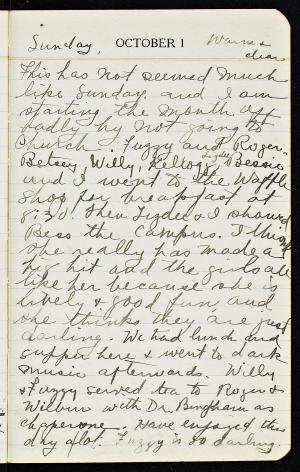 Sunday, OCTOBER 1 Warm &
clear
This has not seemed much
like Sunday. and I am
starting the month off
badly by not going to
Church. Fuzzy and Roger.
Betsey, Willy, Kellogg, Lyde, Bessie
and I went to the Waffle
Shop for breakfast at
8:30. Then Lyde & I showed
Bess the Campus. I think
she really has made a
big hit and the girls all
like her because she is
lively & good fun, and
she thinks they are just
darling. We had lunch and
supper here & went to dark
music afterwards. Willy
& Fuzzy served tea to Roger &
Wilbur with Dr. Bingham as
chaperone. Have enjoyed this
day a lot. Fuzzy is so darling.